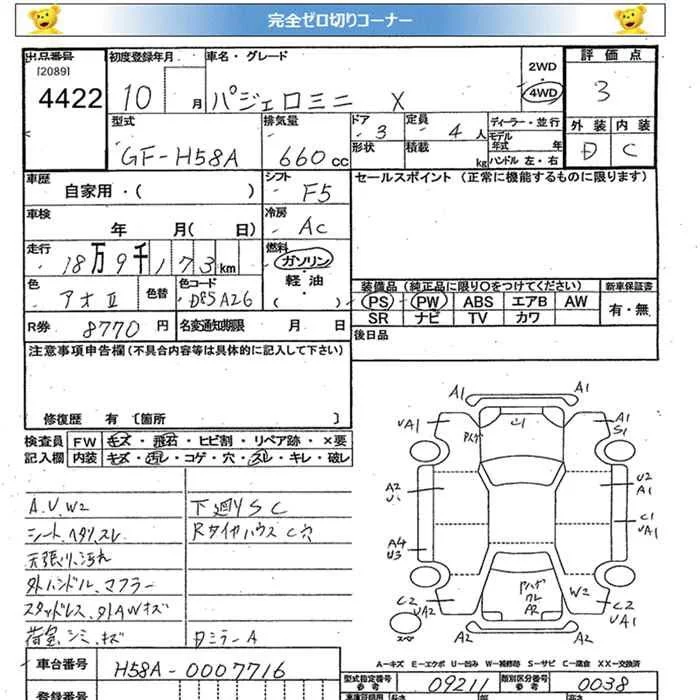 完全ゼロ切りコーナー
出品番号 [2089] 4422
初度登録年月 10 月
車名・グレード パジェロミニ X
2WD 4WD
評価点 3
外装 D 内装 C
型式 GF-H58A
排気量 660 cc
ドア 3 定員 4 人
形状 積載 kg
ディーラー・並行
モデル年式 年
ハンドル 左・右
車歴 自家用・( )
シフト F5
セールスポイント (正常に機能するものに限ります)
車検 年 月( 日)
冷房 AC
走行 18万9千173km
燃料 ガソリン・軽油 ( )
色 アオII 色替 色コード D85A26
装備品 (純正品に限り○をつけてください) 新車保証書
PS PW ABS エアB AW 有・無
SR ナビ TV カワ
R券 8770 円 名変通知期限 月 日
後日品
注意事項申告欄 (不具合内容等は具体的に記入して下さい)
修復歴 有 〔箇所 〕
検査員 FW キズ・飛石・ヒビ割・リペア跡・×要
記入欄 内装 キズ・汚レ・コゲ・穴・スレ・キレ・破レ
A.U.W2 下廻りSC
シートヘタリスレ Rタイヤハウス C穴
天張り汚れ
外ハンドル、マフラー
スタッドレス、外AWキズ
荷室シミ、キズ DミラーA
A1 A1
UA1 C1 A1 S1
A2 U2 A1
A4 U3 C1 UA1
W2
C2 UA2 C2 UA1
A2 A2
A-キズ E-エクボ U-凹み W-補修跡 S-サビ C-腐食 XX-交換済
車台番号 H58A-0007716
型式指定番号 参考 09211 類別区分番号 参考 0038
登録番号